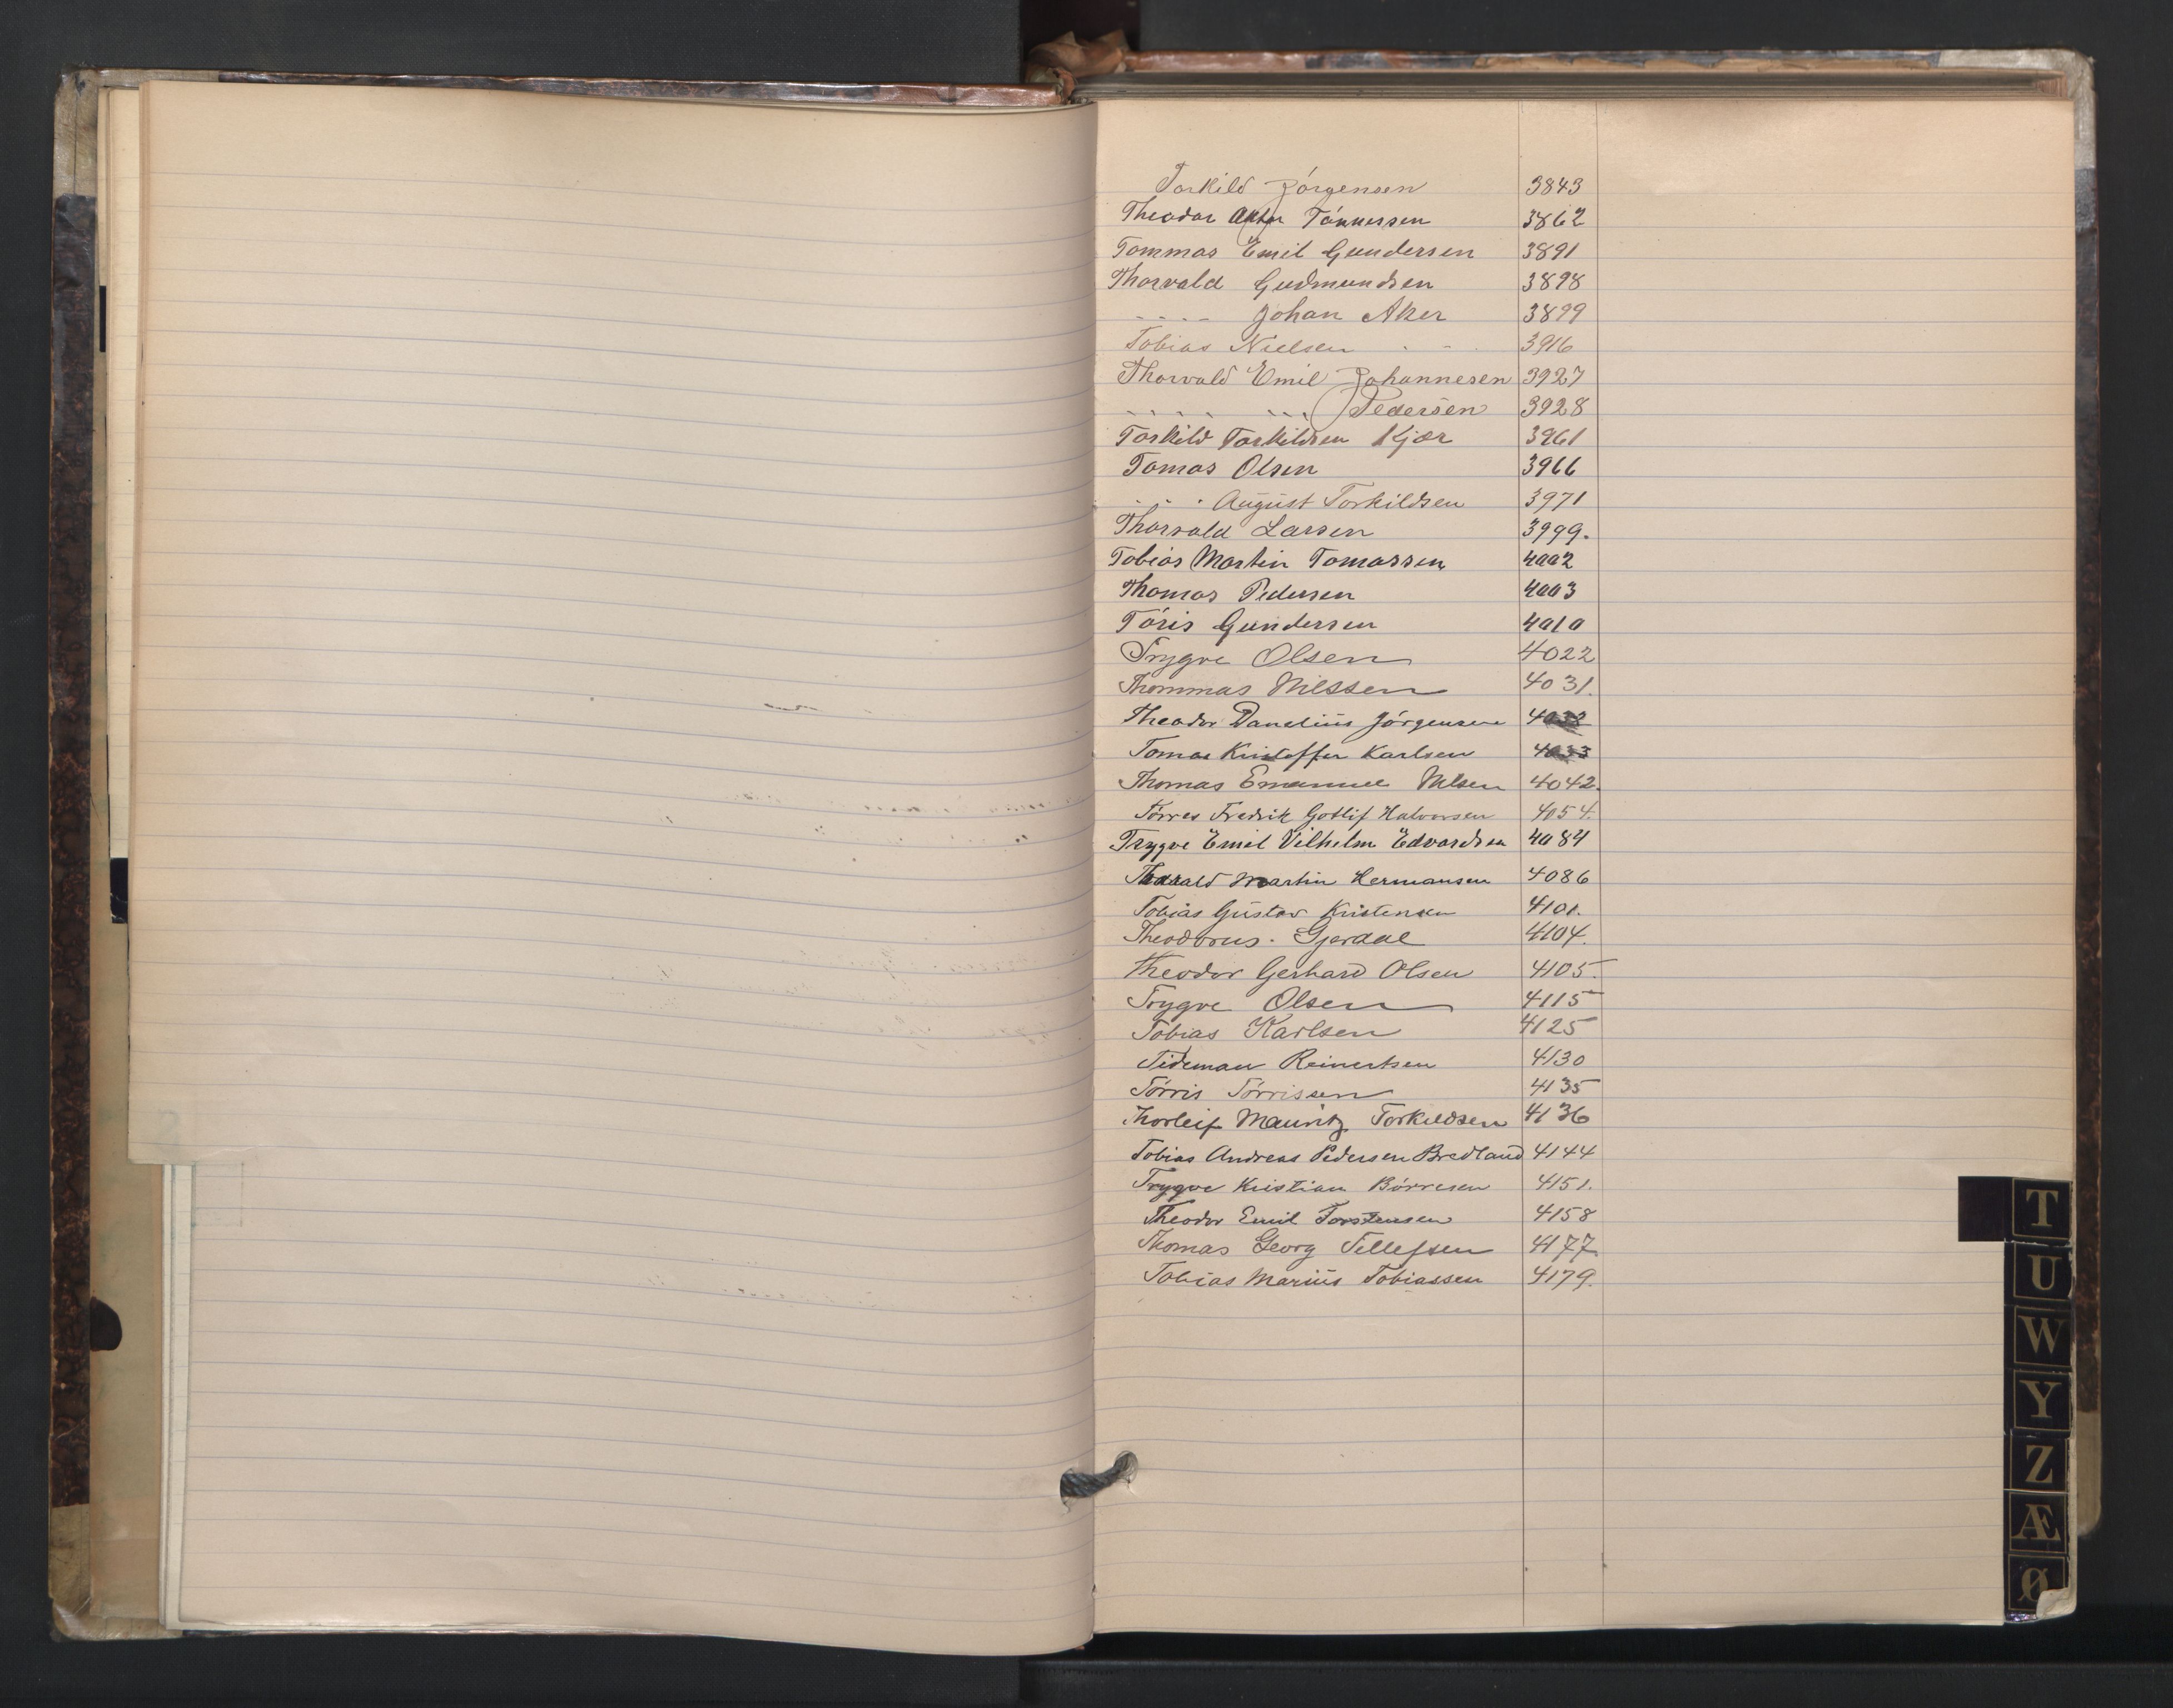 Torkild Jörgensen 3843
Theodor Anton Tönnessen 3862
Tommas Emil Gundersen 3891
Thorvald Gudmundsen 3898
- - - - Johan Aker 3899
Tobias Nielsen - - 3916
Thorvald Emil Johannesen 3927
- - - - - - - Pedersen 3928
Torkild Torkildsen Kjær 3961
Tomas Olsen 3966
- - - August Torkildsen 3971
Thorvald Larsen 3999.
Tobias Martin Tomassen 4002
Thomas Pedersen 4003
Töris Gundersen 4010
Trygve Olsen 4022
Thommas Nilssen 4031.
Theodor Danelius Jörgensen 4032
Tomas Kristoffer Karlsen 4033
Thomas Emanuel Nilsen 4042.
Törres Fredrik Gotlif Halvorsen 4054.
Trygve Emil Vilhelm Edvardsen 4084
Harald Martin Hermansen 4086
Tobias Gustav Kristensen 4101.
Theodorus. Gjerdal 4104.
Theodor Gerhard Olsen 4105.
Trygve Olsen 4115
Tobias Karlsen 4125
Tideman Reinertsen 4130
Törris Törrissen 4135
Thorleif Mauritz Torkildsen 4136
Tobias Andreas Pedersen Bredland 4144
Trygve Kristian Börresen 4151.
Theodor Emil Torstensen 4158
Thomas Georg Tellefsen 4177
Tobias Marius Tobiassen 4179.
T
U
W
Y
Z
Æ
Ø